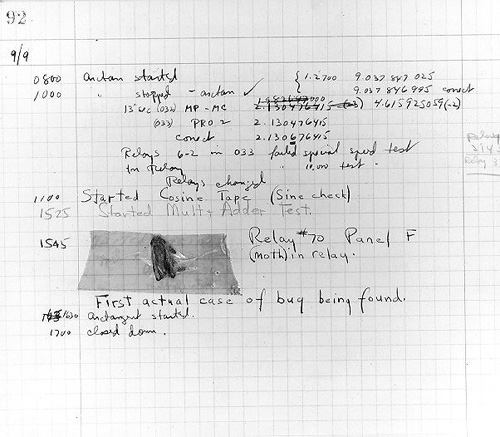 92
9/9
0800 Antan started { 1.2700 9.037 847 025
1000 " stopped - antan ✓ 9.037 846 995 correct
13" uc (032) MP - MC 4.615925059(-2)
(033) PRO 2 2.130476415
correct 2.130676415
Relays 6-2 in 033 failed special speed test
in Relay " 10,000 test.
Relays changed
1100 Started Cosine Tape (Sine check)
1525 Started Mult + Adder Test.
1545 Relay #70 Panel F
(Moth) in relay.
First actual case of bug being found.
1630 antangent started.
1700 closed down.